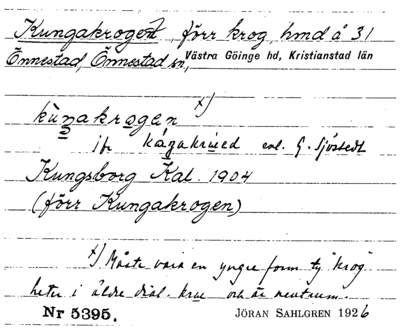 Kungakrogen, förr krog, hmd å 31
Önnestad, Önnestad sn, Västra Göinge hd, Kristianstad län
x)
kùnakrogen
jfr kágakrued enl. G. Sjöstedt
Kungsborg Kal. 1904
(förr Kungakrogen)
x) Måste vara en yngre form ty "krog"
heter i äldre dial. krue och är neutrum.
Nr 5395. JÖRAN SAHLGREN 1926